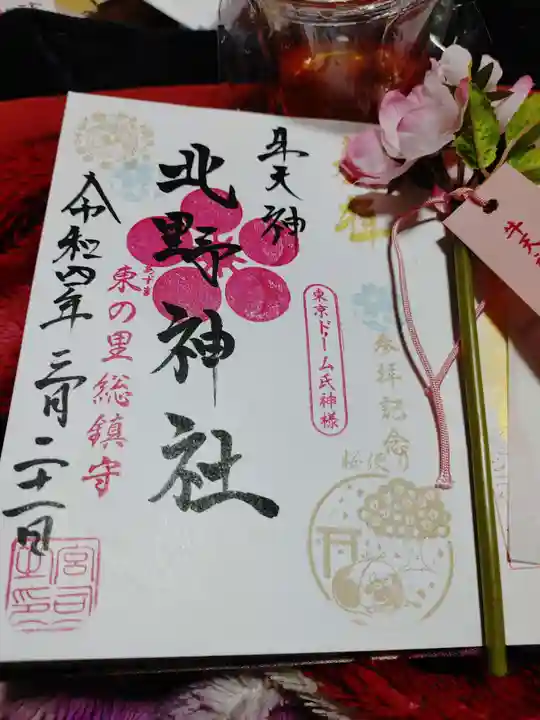 牛天神
北野神社
東京ドーム氏神様
参拝記念
あずま
東の里総鎮守
令和四年三月二十一日
宮司之印
牛天神